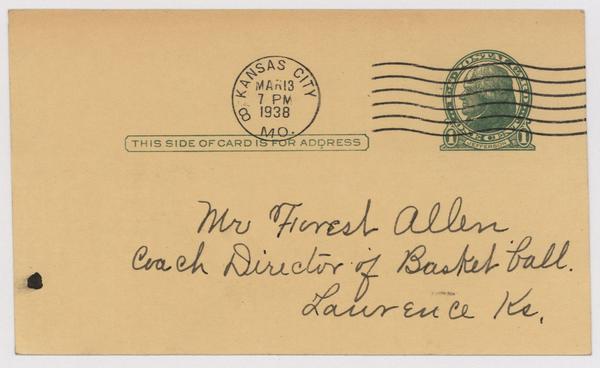 KANSAS CITY
MAR 13
7 PM
1938
8 MO.
THIS SIDE OF CARD IS FOR ADDRESS
JEFFERSON
1 1
Mr Forest Allen
Coach Director of Basket ball.
Lawrence Ks.